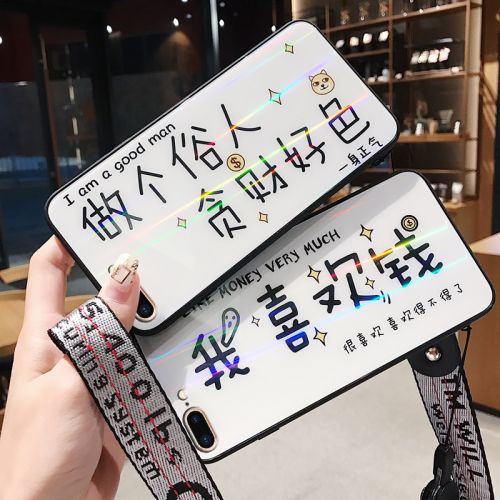 I am a good man
做个俗人
贪财好色
一身正气
LIKE MONEY VERY MUCH
我喜欢钱
很喜欢喜欢得不得了